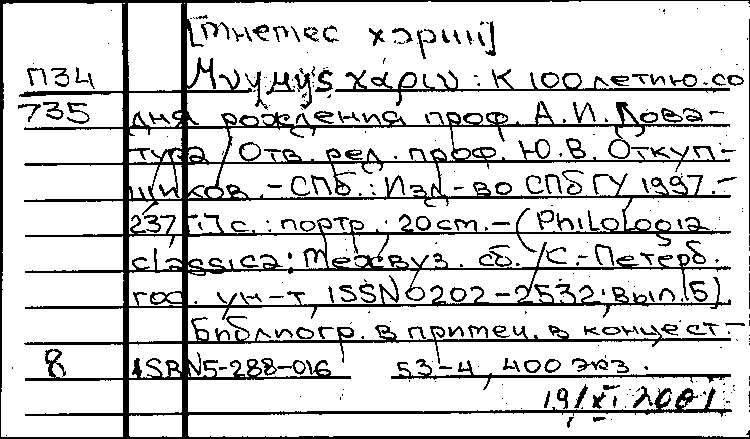 [Тнетес хэрин]
П34 Μνημης χάριν : К 100 летию. со
735 дня рождения проф. А. И. Дова-
тура / Отв. ред. проф. Ю. В. Откуп-
щиков. - СПб. : Изд - во СПбГУ 1997. -
237, с. : портр. ; 20 cm. - (Philologia
classica : Межвуз. сб. / С.-Петерб.
гос. ун-т, ISSN 0202-2532; вып. 5)
Библиогр. в примеч. в конце ст -
8 ISBN 5-288-016 53-4, 400 экз.
19/XI 2001